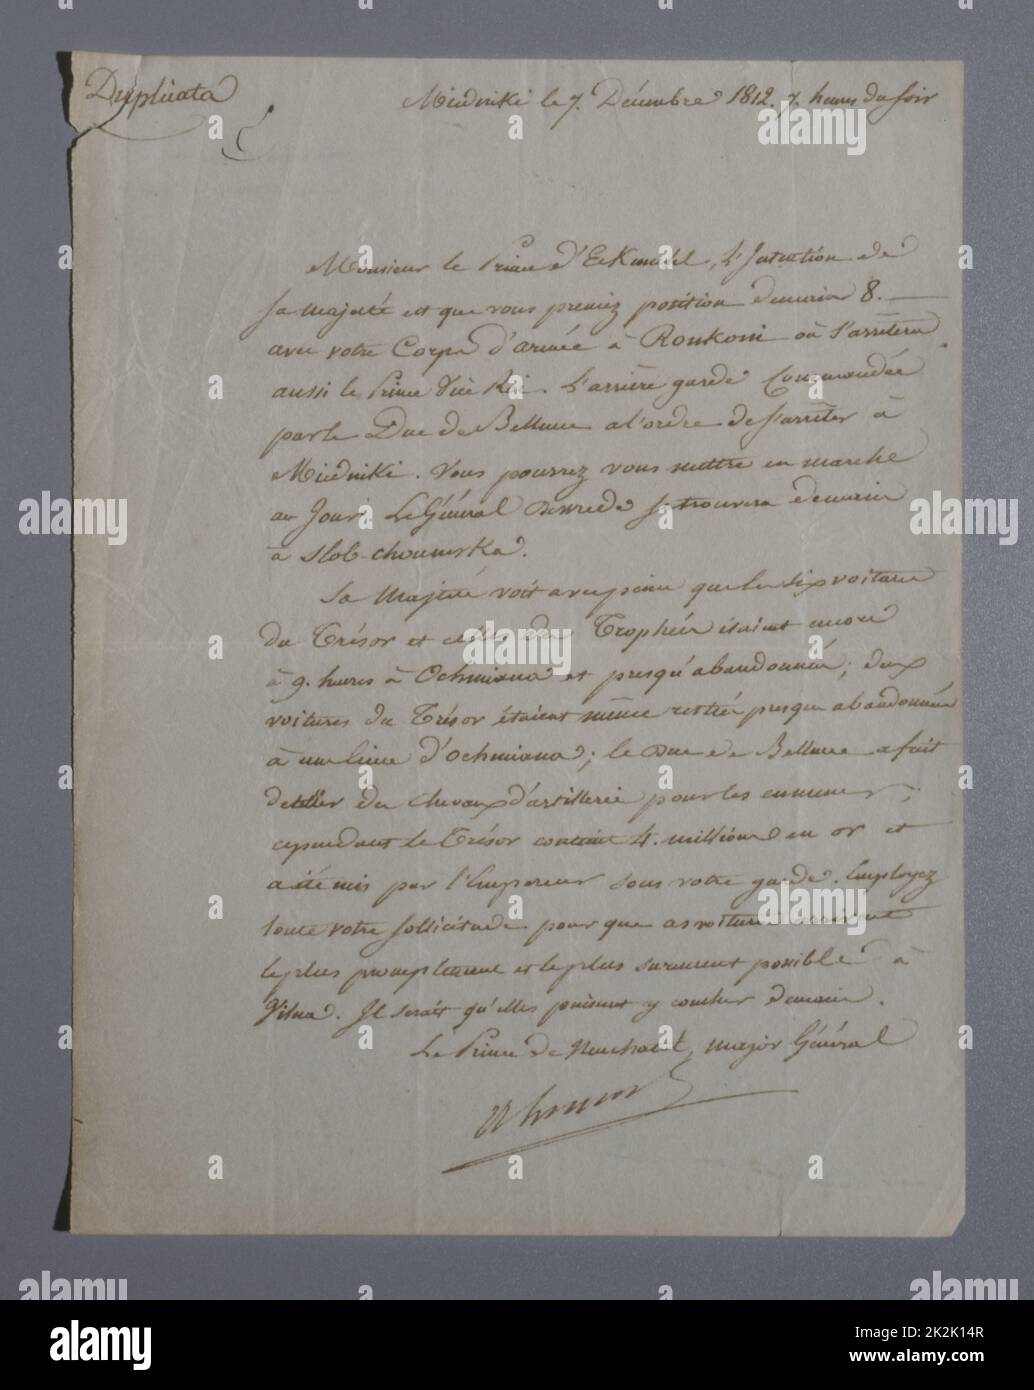 Duplicata
Miedniki le 7. Décembre 1812. 7. heures du soir
Monsieur le Prince d'Eckmühl, L'Intention de
sa majesté est que vous preniez position demain 8.
avec votre Corps d'armée à Roukoni où s'arrêtera
aussi le Prince Vice Roi. L'arrière garde Commandée
par le Duc de Bellune a l'ordre de s'arrêter à
Miedniki. Vous pourrez vous mettre en marche
au Jour. Le Général se trouvera demain
à Slob-choumska.
Sa Majesté voit avec peine que les six voitures
du Trésor et celles des Trophées étaient encore
à 9. heures à Ochmiana et presqu'abandonnées; deux
voitures du Trésor étaient même restées presque abandonnées
à une lieue d'Ochmiana; le Duc de Bellune a fait
dételer des chevaux d'artillerie pour les emmener;
cependant le Trésor contient 4. millions en or et
a été mis par l'Empereur sous votre garde. Employez
toute votre sollicitude pour que ces voitures arrivent
le plus promptement et le plus surement possible à
Vilna. Il serait qu'elles puissent y coucher demain.
Le Prince de Neuchatel, major Général
alamy
B2K14R
www.alamy.com